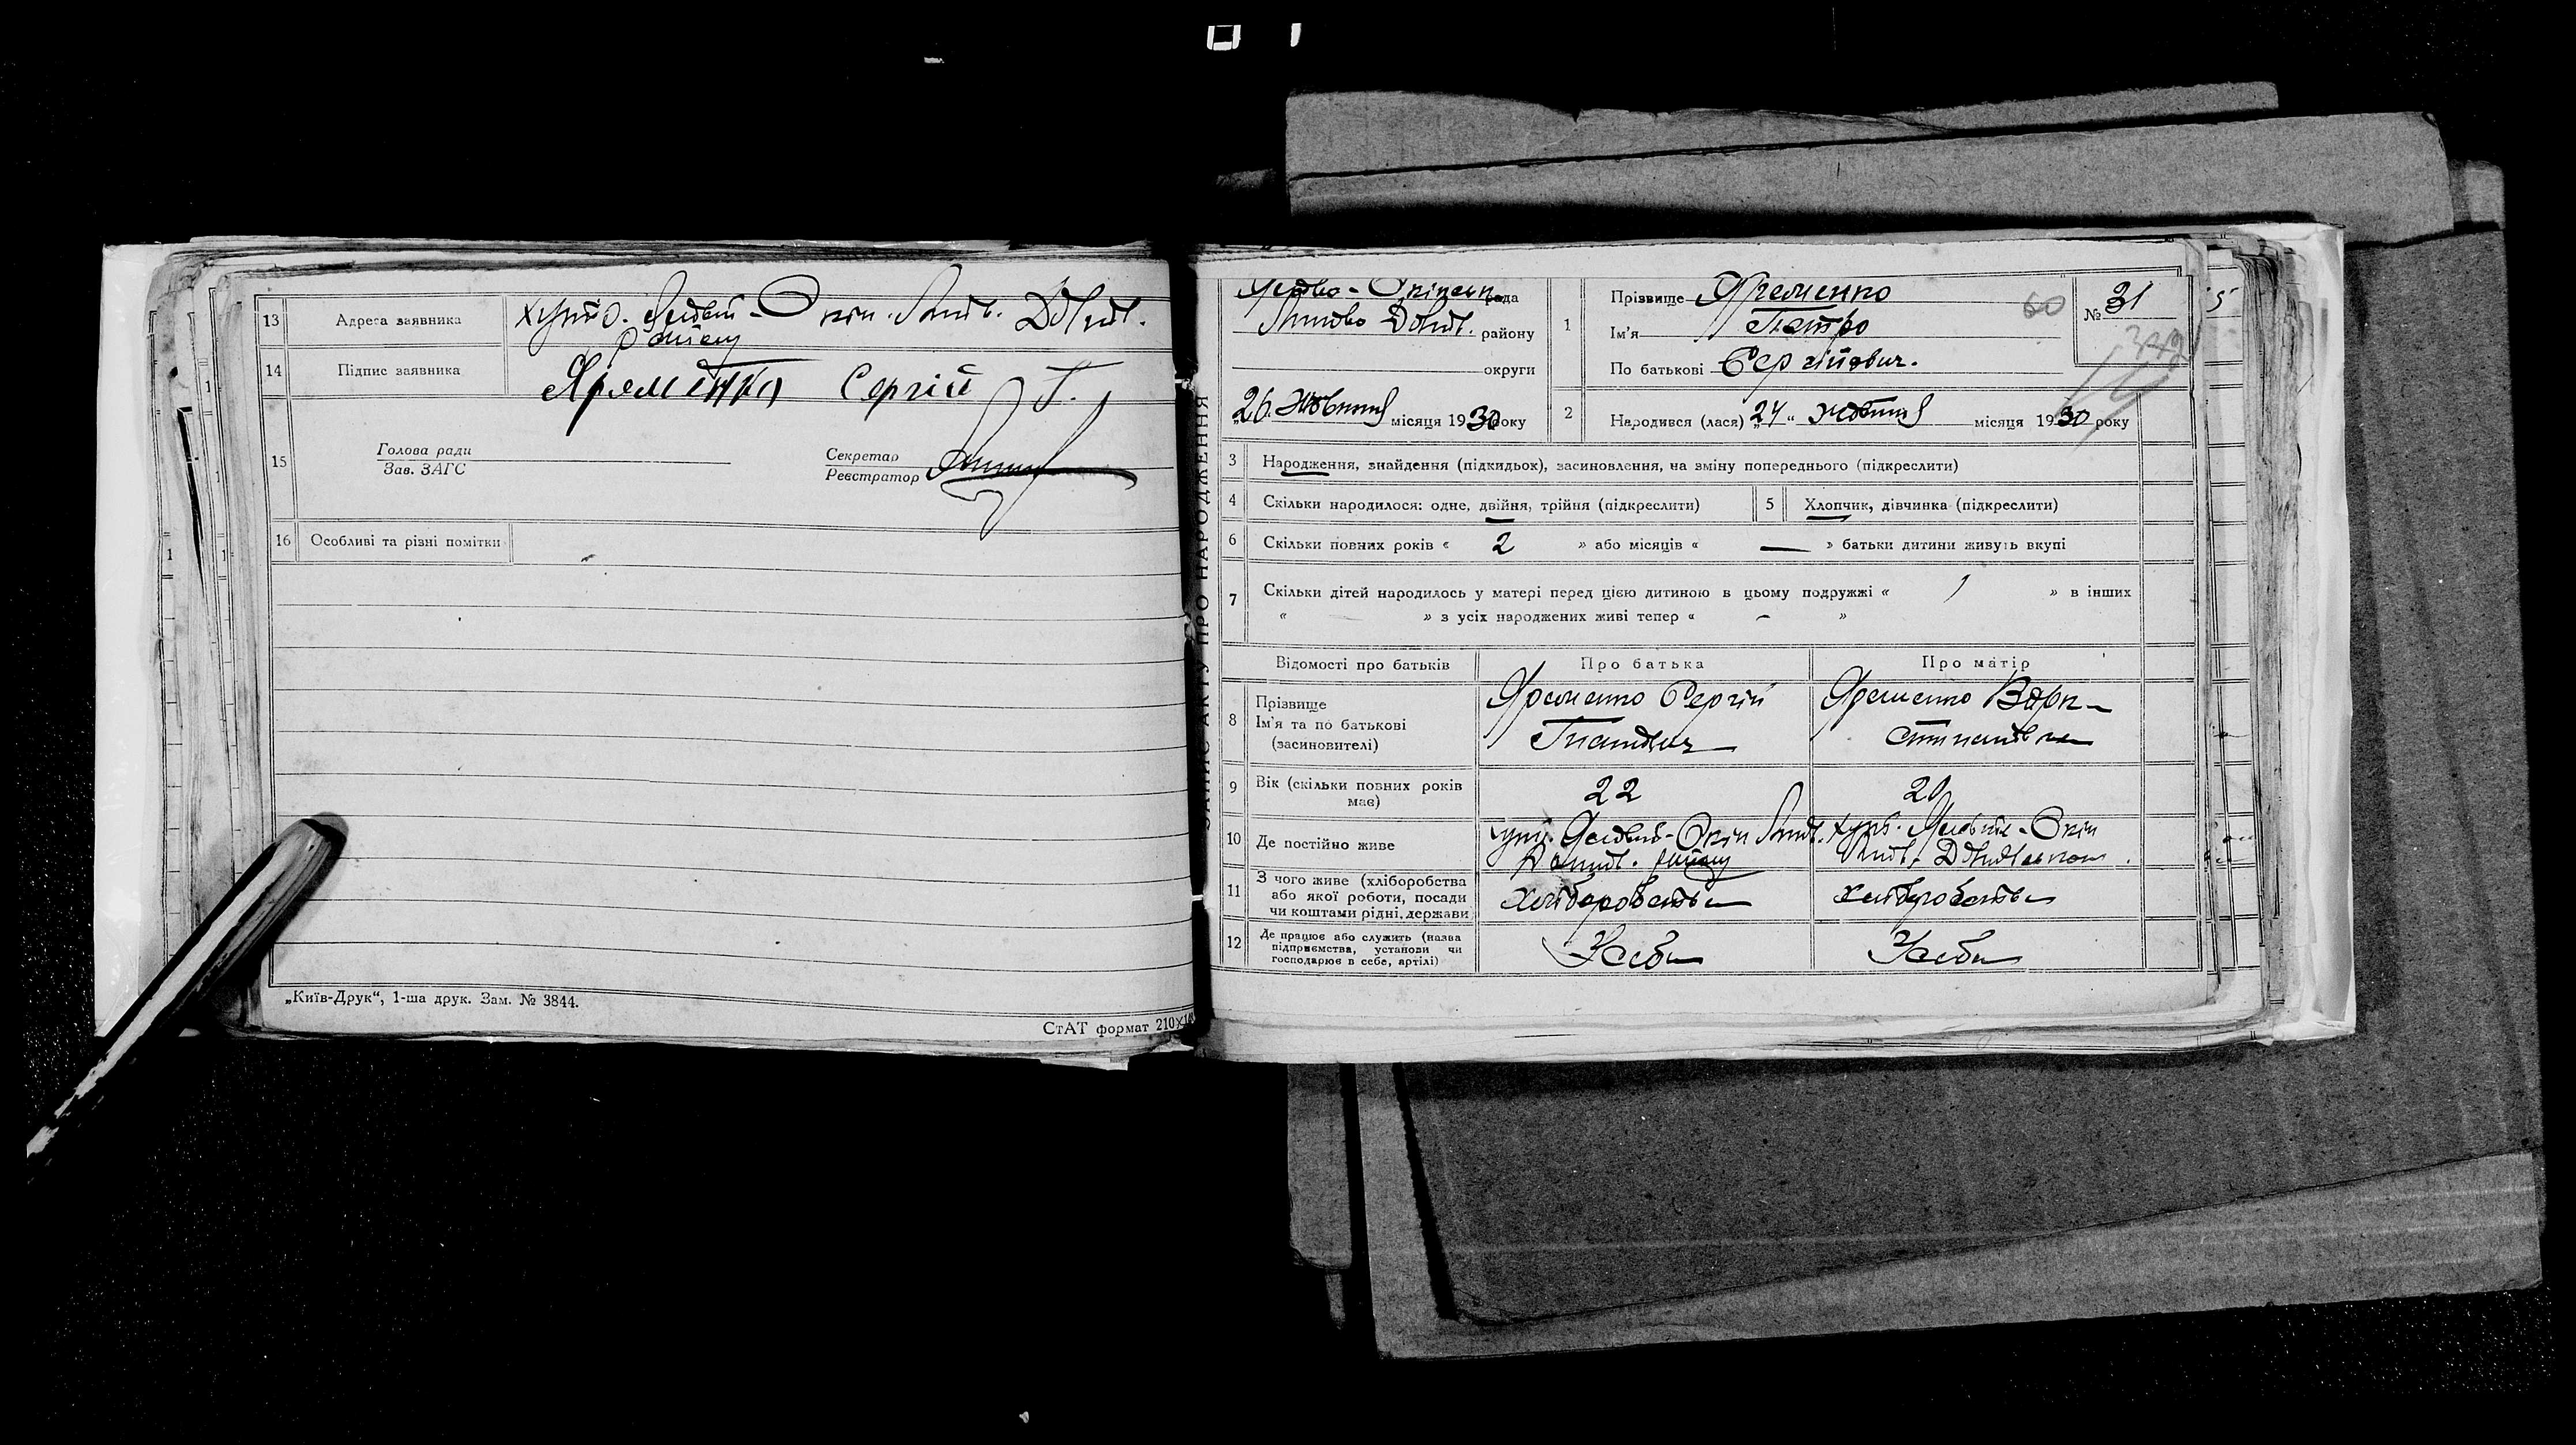 13 Адреса заявника
14 Підпис заявника Яременко Сергій Г.
15 Голова ради
Зав. ЗАГС
Секретар
Реєстратор
16 Особливі та різні помітки
„Київ-Друк“, 1-ша друк. Зам. № 3844.
СтАТ формат 210
ЗАПИС АКТУ ПРО НАРОДЖЕННЯ
рада
району
округи
„26 Жовтня місяця 1930 року
1 Прізвище Яременко
Ім'я Петро
По батькові Сергійович.
60
№ 31
2 Народився (лася) „24“ Жовтня місяця 1930 року
3 Народження, знайдення (підкидьох), засиновлення, на зміну попереднього (підкреслити)
4 Скільки народилося: одне, двійня, трійня (підкреслити)
5 Хлопчик, дівчинка (підкреслити)
6 Скільки повних років « 2 » або місяців « — » батьки дитини живуть вкупі
7 Скільки дітей народилось у матері перед цією дитиною в цьому подружжі « 1 » в інших
« » з усіх народжених живі тепер « – »
Відомості про батьків Про батька Про матір
8 Прізвище
Ім'я та по батькові
(засиновителі)
Яременко Сергій
Яременко Варк
9 Вік (скільки повних років
має)
22
20
10 Де постійно живе
11 З чого живе (хліборобства
або якої роботи, посади
чи коштами рідні, держави
хліборобства
хліборобства
12 Де працює або служить (назва
підприємства, установи чи
господарює в себе, артілі)
У себе
У себе